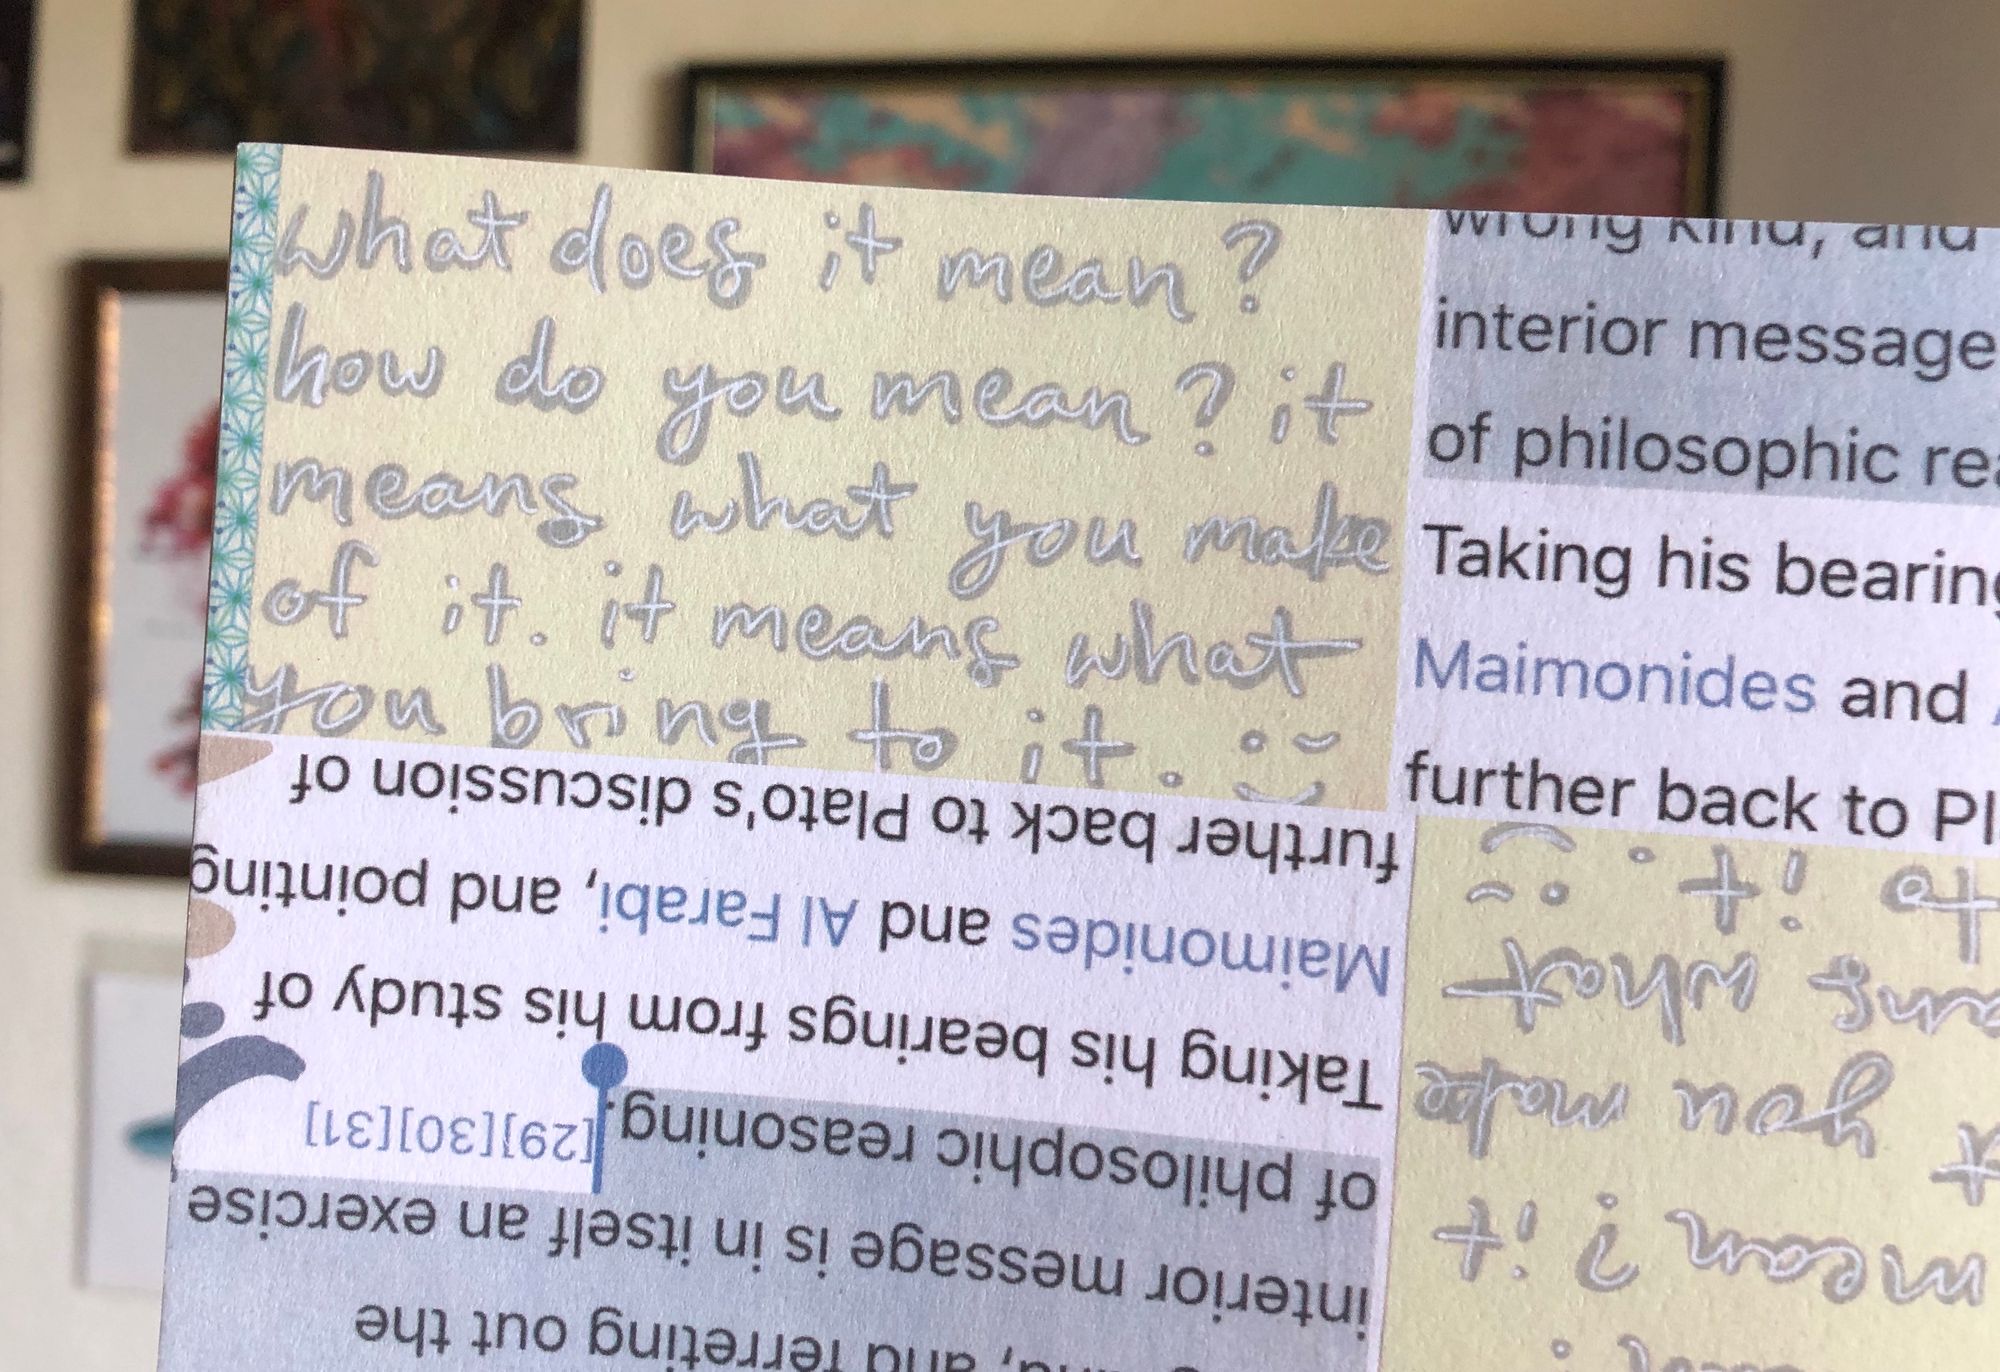 what does it mean?
how do you mean? it
means what you make
of it. it means what
you bring to it. :)
wrong kind, and
interior message
of philosophic
Taking his
Maimonides and
further back to
the ferreting out the
interior message is in itself an exercise
of philosophic reasoning.[29][30][31]
Taking his bearings from his study of
Maimonides and Al Farabi, and pointing
further back to Plato's discussion of
mean? it
you make
what
to it. :)